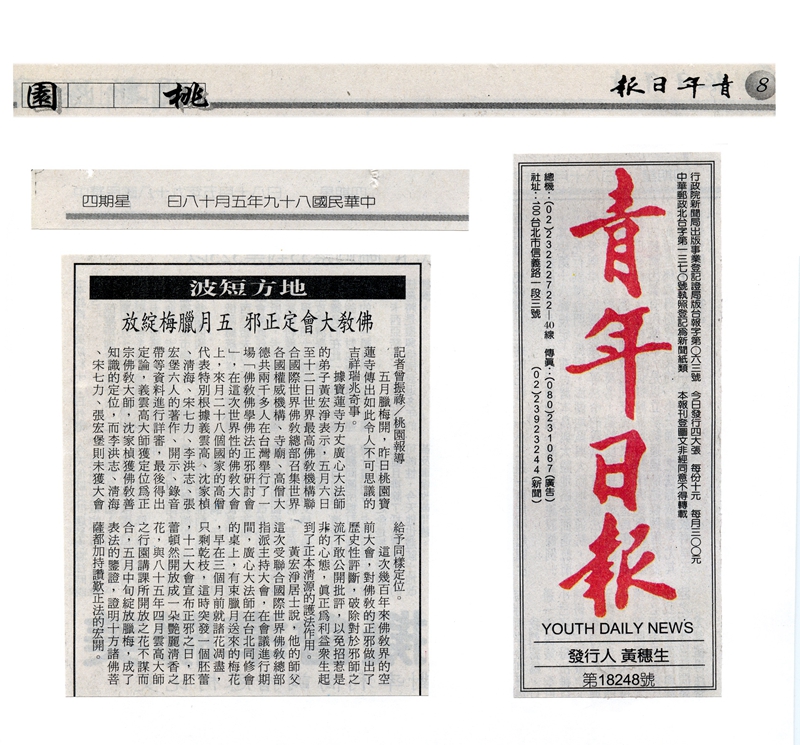 8 青年日報
桃園
中華民國八十九年五月十八日 星期四
行政院新聞局出版事業登記證局版台報字第〇六三號 今日發行四大張 每份十元 每月三〇〇元
中華郵政北台字第一三七〇號執照登記為新聞紙類 本報刊登圖文非經同意不得轉載
青年日報
總機：(02)23222722－40線 傳真：(080)231067(廣告)
社址：100台北市信義路一段三號 (02)23923244(新聞)
YOUTH DAILY NEWS
發行人 黃穗生
第18248號
地方短波
佛教大會定正邪 五月臘梅綻放
記者曾振祿／桃園報導
五月臘梅開，昨日桃園寶
蓮寺傳出如此令人不可思議的
吉祥瑞兆奇事。
據寶蓮寺方丈廣心大法師
的弟子黃宏淨表示，五月六日
至十二日世界最高佛教機構聯
合國際世界佛教總部召集世界
各國權威機構、寺廟、高僧大
德共兩千多人在台灣舉行了一
場「佛教佛學佛法正邪研討會
」，在這次世界性的佛教大會
上，來月二十八個國家的高僧
代表特別根據義雲高、沈家楨
、清海、宋七力、李洪志、張
宏堡六人的著作、開示、錄音
帶等資料進行詳審，最後得出
定論，義雲高大師獲定位為正
宗佛教大師，沈家楨獲佛教善
知識的定位，而李洪志、清海
、宋七力、張宏堡則未獲大會
給予同樣定位。
這次幾百年來佛教界的空
前大會，對佛教的正邪做出了
歷史性評斷，破除對於邪師之
流不敢公開批評，以免招惹是
非的心態，真正為利益眾生起
到了正本清源的護法作用。
黃宏淨居士說，他的師父
這次受聯合國際世界佛教總部
指派主持大會，在會議進行期
間，廣心大法師在台北同修會
的桌上，有束臘月送來的梅花
，早在三個月前就諸花凋盡，
只剩乾枝，這時突發一個胚蕾
，十二大會宣布正邪之日，胚
蕾頓然開放成一朵艷麗清香之
花，與八十五年四月雲高大師
之行園講課所開放之花不謀而
合，五月中旬綻放臘梅，成了
表法的鑒證，證明十方諸佛菩
薩都加持讚歎正法的宏開。